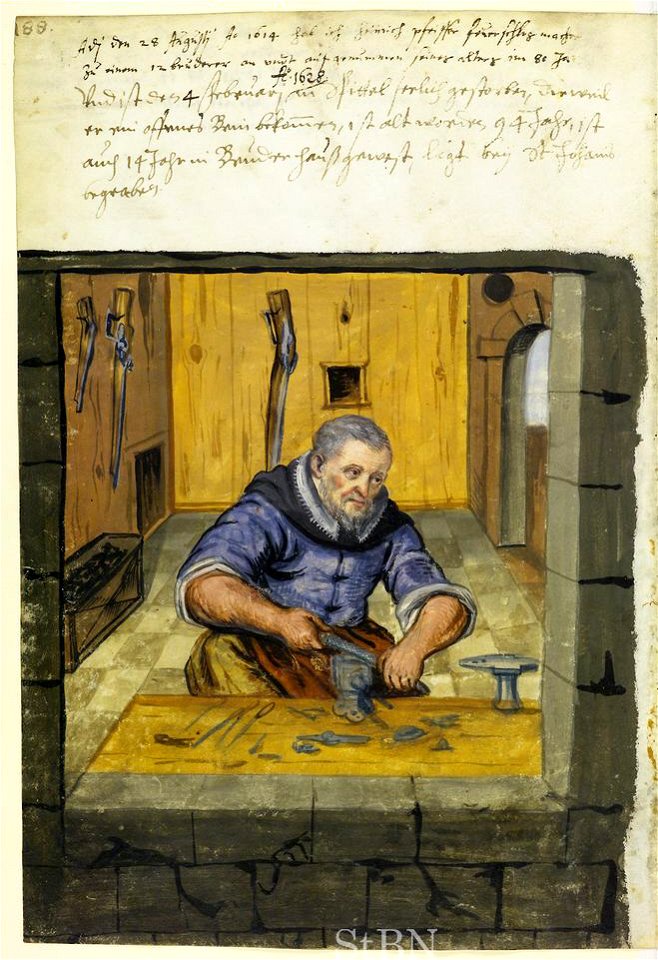 188.
Adj den 28 Augusti Ao 1614 hab ich Heinrich pfeiffer feuerschlosmacher
zu einem 12 bruderer an undt aufgenummen seines alters im 80 Jar
Ao. 1628
Und ist den 4 februari im Spittel seelich gestorben, dieweil
er ein offenes Bein bekommen, ist alt worden 94 Jahr, ist
auch 14 Jahr in Bruderhauß gewest, ligt bey St Johans
begraben
StBN